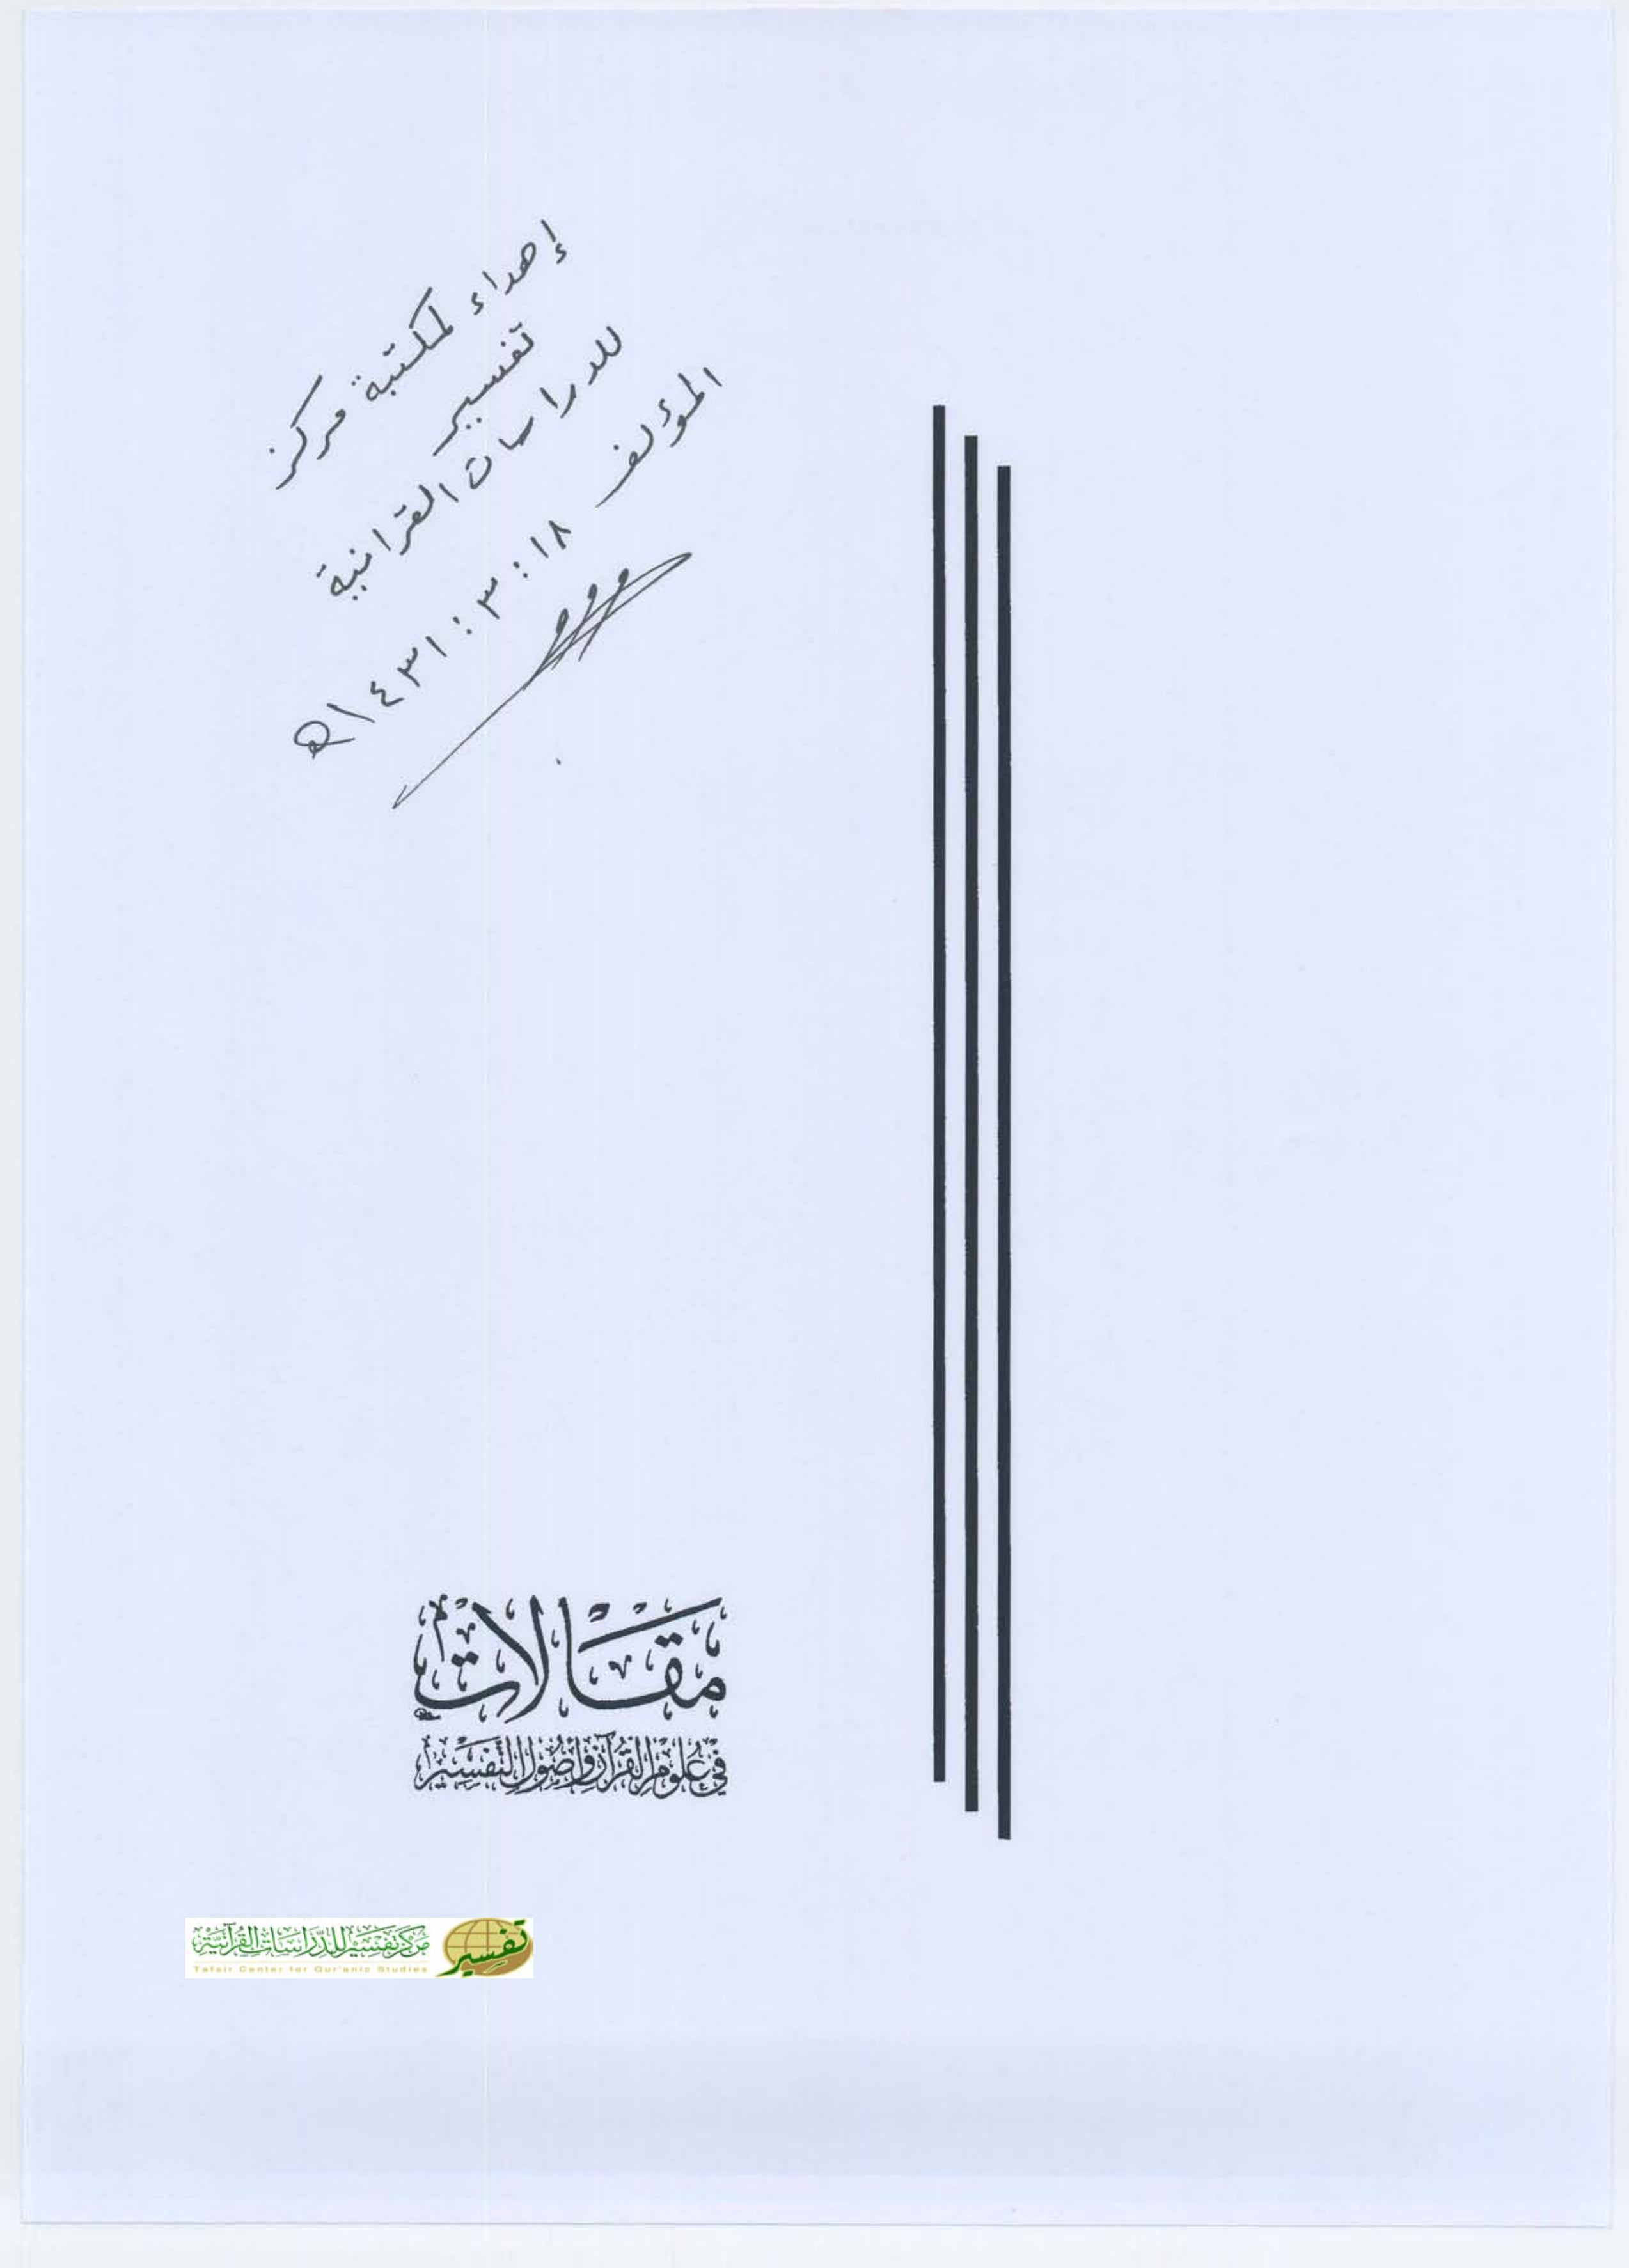 إهداء لمكتبة مركز
تفسير
للدراسات القرانية
المؤلف
١٨ : ٣ : ١٤٣١ هـ
مقالات
في علوم القرآن وأصول التفسير
مركز تفسير للدراسات القرآنية
Tafsir Center for Qur'anic Studies
تفسير